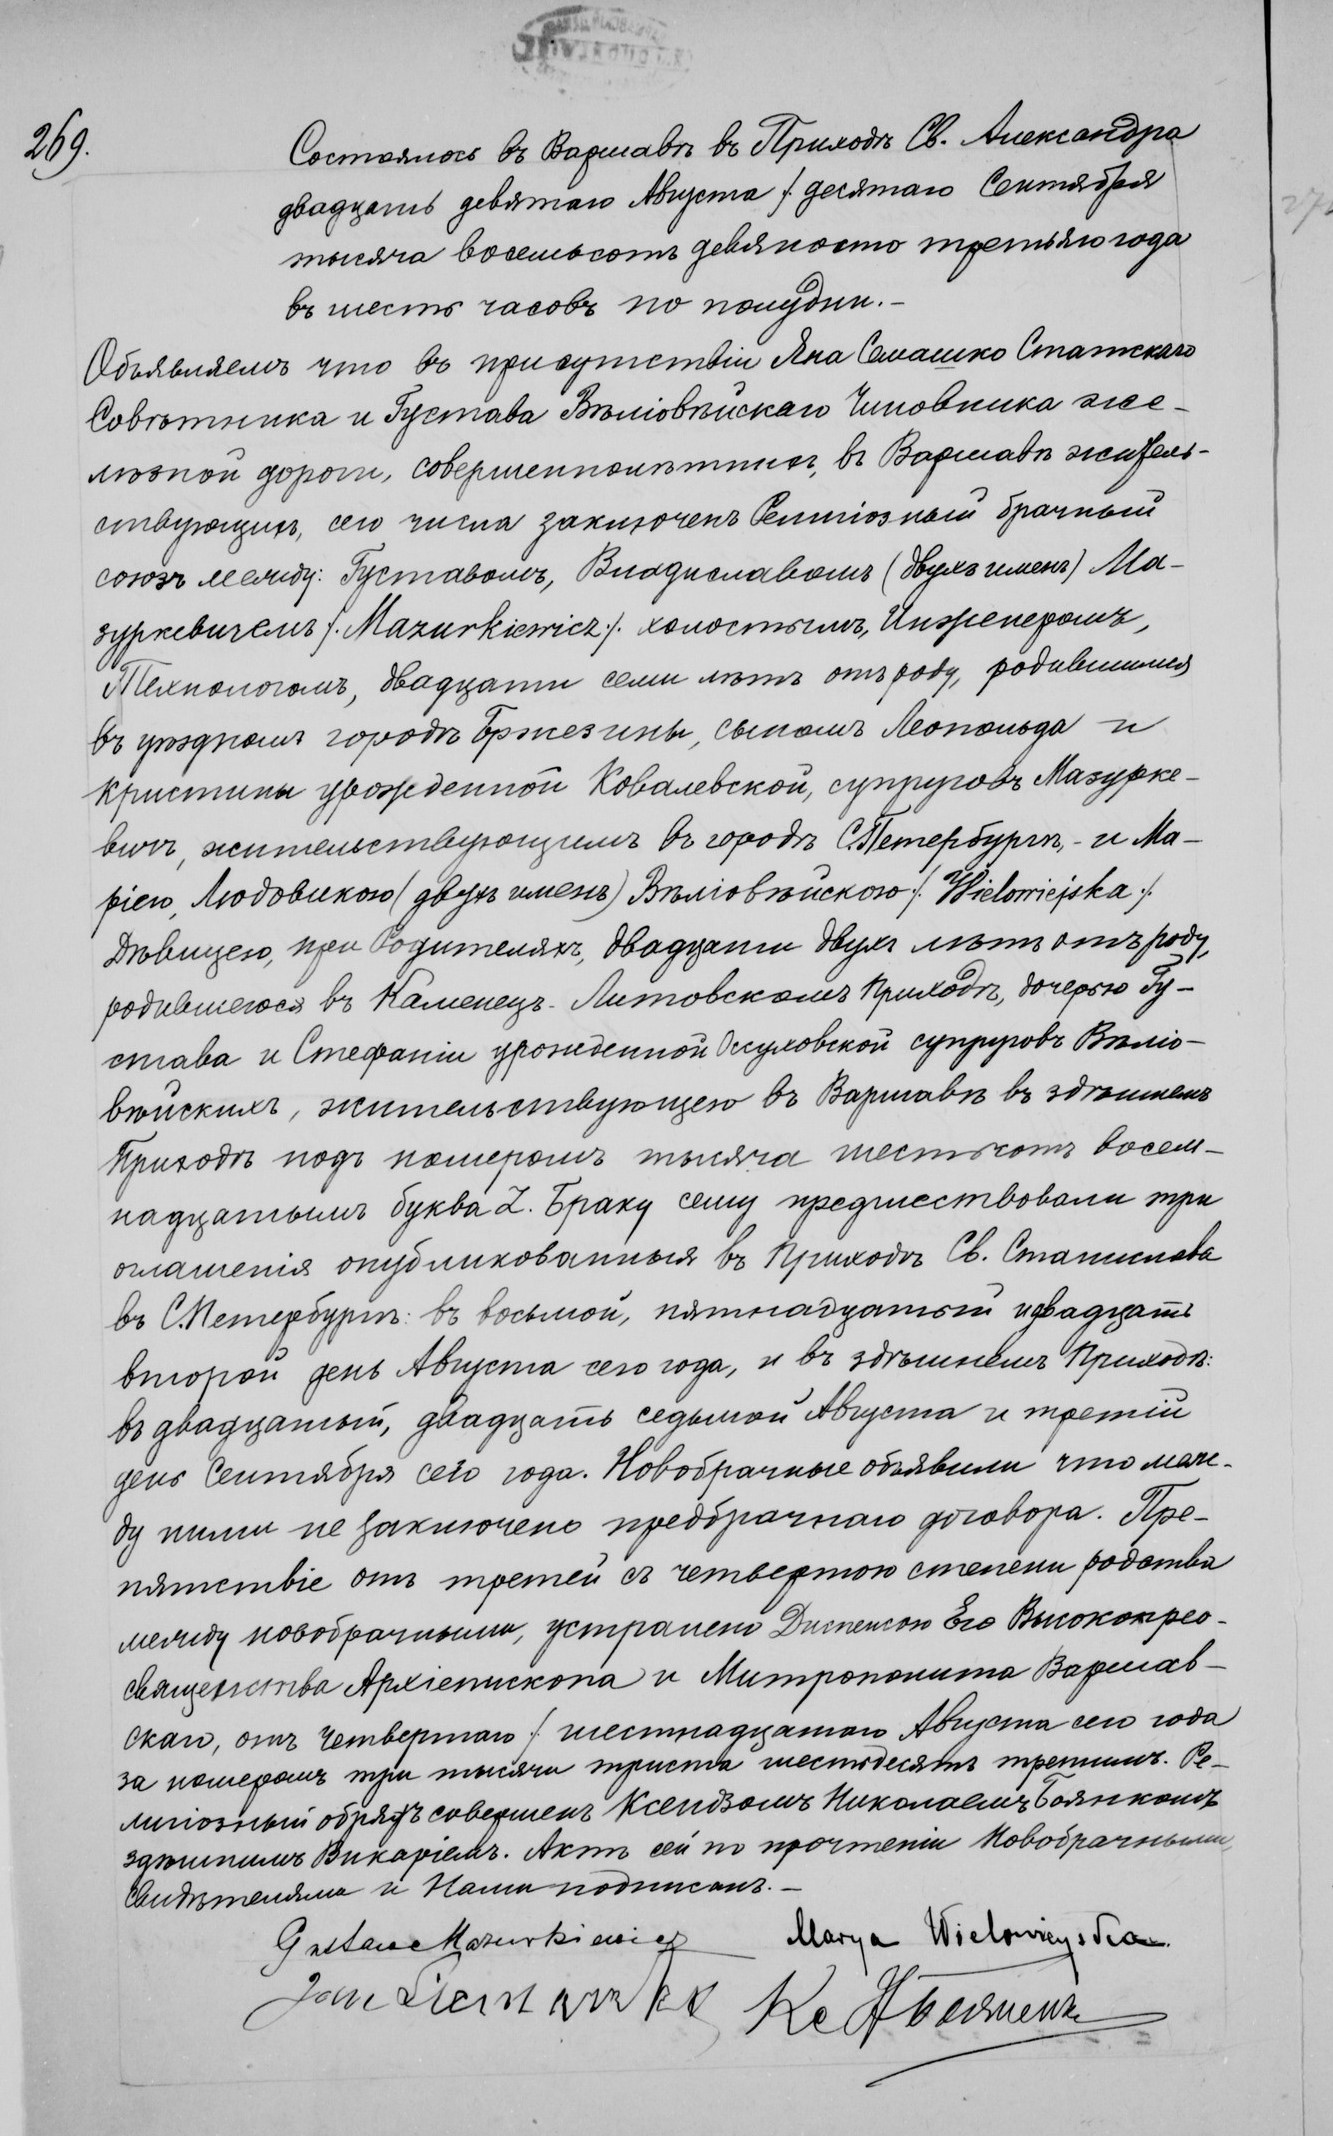 269.
Состоялось въ Варшавѣ въ Приходѣ Св. Александра
двадцать девятаго Августа /: десятаго Сентября
тысяча восемьсотъ девяносто третьяго года
въ шесть часовъ по полудни. –
Объявляемъ что въ присутствіи Яна Семашко Статскаго
Совѣтника и Густава Вѣліовѣйскаго Чиновника же-
лѣзной дороги, совершеннолѣтнихъ, въ Варшавѣ житель-
ствующихъ, сего числа заключенъ Религіозный брачный
союзъ между: Густавомъ, Владиславомъ (двухъ именъ) Ма-
зуркевичемъ /: Mazurkiewicz :/ холостымъ, Инженеромъ,
Технологомъ, двадцати семи лѣтъ отъ роду, родившимся
въ уѣздномъ городѣ Бржезины, сыномъ Леопольда и
Кристины урожденной Ковалевской, супруговъ Мазурке-
вичъ, жительствующимъ въ городѣ С.Петербургѣ, - и Ма-
ріею, Людовикою (двухъ именъ) Вѣліовѣйскою /: Wielowiejska :/
Дѣвицею, при Родителяхъ, двадцати двухъ лѣтъ отъ роду,
родившеюся въ Каменецъ-Литовскомъ Приходѣ, дочерью Гу-
става и Стефаніи урожденной Осуховской супруговъ Вѣліо-
вѣйскихъ, жительствующею въ Варшавѣ въ здѣшнемъ
Приходѣ подъ номеромъ тысяча шестьсотъ восем-
надцатымъ буква Z. Браку сему предшествовали три
оглашенія опубликованныя въ Приходѣ Св. Станислава
въ С.Петербургѣ: въ восьмой, пятнадцатый и двадцать
второй день Августа сего года, и въ здѣшнемъ Приходѣ:
въ двадцатый, двадцать седьмой Августа и третій
день Сентября сего года. Новобрачные объявили что меж-
ду ними не заключено предбрачнаго договора. Пре-
пятствіе отъ третей съ четвертою степени родства
между новобрачными, устранено Диспенсою Его Высокопрео-
священства Архіепископа и Митрополита Варшав-
скаго, отъ четвертаго /: шестнадцатаго Августа сего года
за номеромъ три тысячи триста шестьдесятъ третимъ. Ре-
лигіозный обрядъ совершенъ Ксендзомъ Николаемъ Боянкомъ
здѣшнимъ Викаріемъ. Актъ сей по прочтеніи Новобрачными,
Свидѣтелями и Нами подписанъ. –
Gustaw Mazurkiewicz Marya Wielowieyska
Jan Кс Н Боянекъ